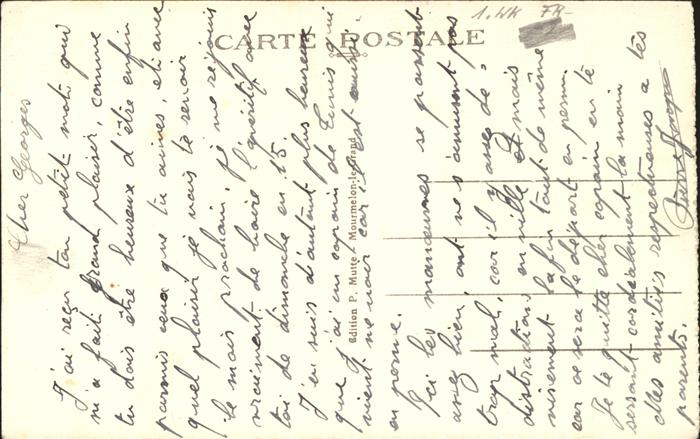 CARTE POSTALE
1. WK FR-
Cher Georges
J'ai reçu ton petit mot qui
m'a fait grand plaisir, comme
tu dois être heureux d'être enfin
parmis ceux que tu aimes, et avec
quel plaisir je vais te revoir
le mois prochain. Je me réjouis
vraiment de boire l'apéritif avec
toi de dimanche en 15
J'en suis d'autant plus heureux
que j'ai un copain de Tunis qui
vient me voir car il est aussi
en perme.
Ici les manœuvres se passent
assez bien, ont ne s'amusent pas
trop mal, car il y a assez de
distractions en ville et mais
vivement la fin tout de même
car ce sera le départ en perm.
Je te quitte cher copain en te
serrant cordialement la main
et mes amitiés respectueuses a tes
parents.
Pierre
Edition P. Mutte, Mourmelon-le-Grand